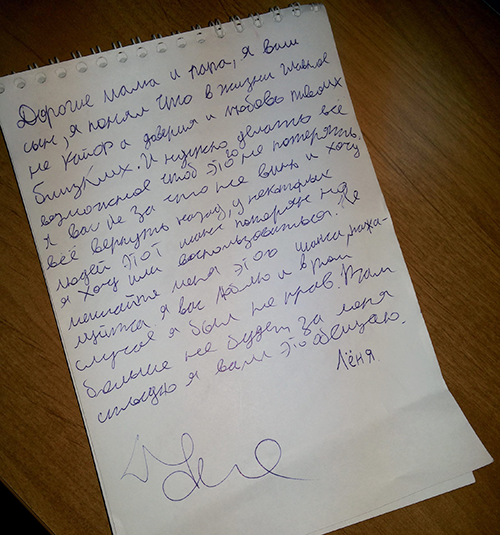 Дорогие мама и папа, я ваш
сын, я понял что в жизни главное
не кайф а доверия и любовь твоих
близких. И нужно делать всё
возможное чтоб это не потерять.
Я вас не за что не виню и хочу
всё вернуть назад, у некоторых
людей этот шанс потерян но
я хочу им воспользоваться. Не
лишайте меня этого шанса, пожа-
луйста я вас люблю и в том
случае я был не прав. Вам
больше не будет за меня
стыдно я вам это обещаю.
Лёня.